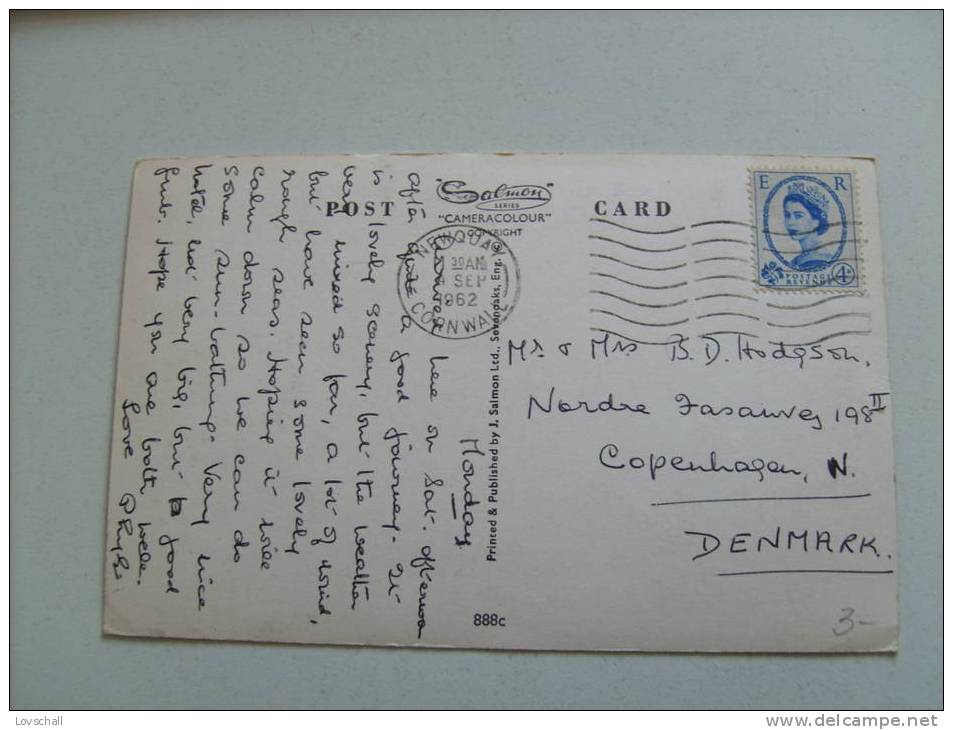 POST CARD
"Salmon"
SERIES
"CAMERACOLOUR"
COPYRIGHT
NEWQUAY
30 AM
SEP
1962
CORNWALL
E R
POSTAGE
REVENUE
4D
Monday
here on Sat. afternoon
after quite a good journey. It
is lovely scenery, but the weather
very mixed so far, a lot of wind,
but have seen some lovely
rough seas. Hoping it will
calm down so we can do
some sun-bathing. Very nice
hotel, not very big, but good
grub. Hope you are both well.
Love
Phyl.
Printed & Published by J. Salmon Ltd., Sevenoaks, Eng. ©
Mr. & Mrs B. D. Hodgson.
Nordre Fasanvej 198 II
Copenhagen, N.
DENMARK.
888c
3-
Lovschall
www.delcampe.net